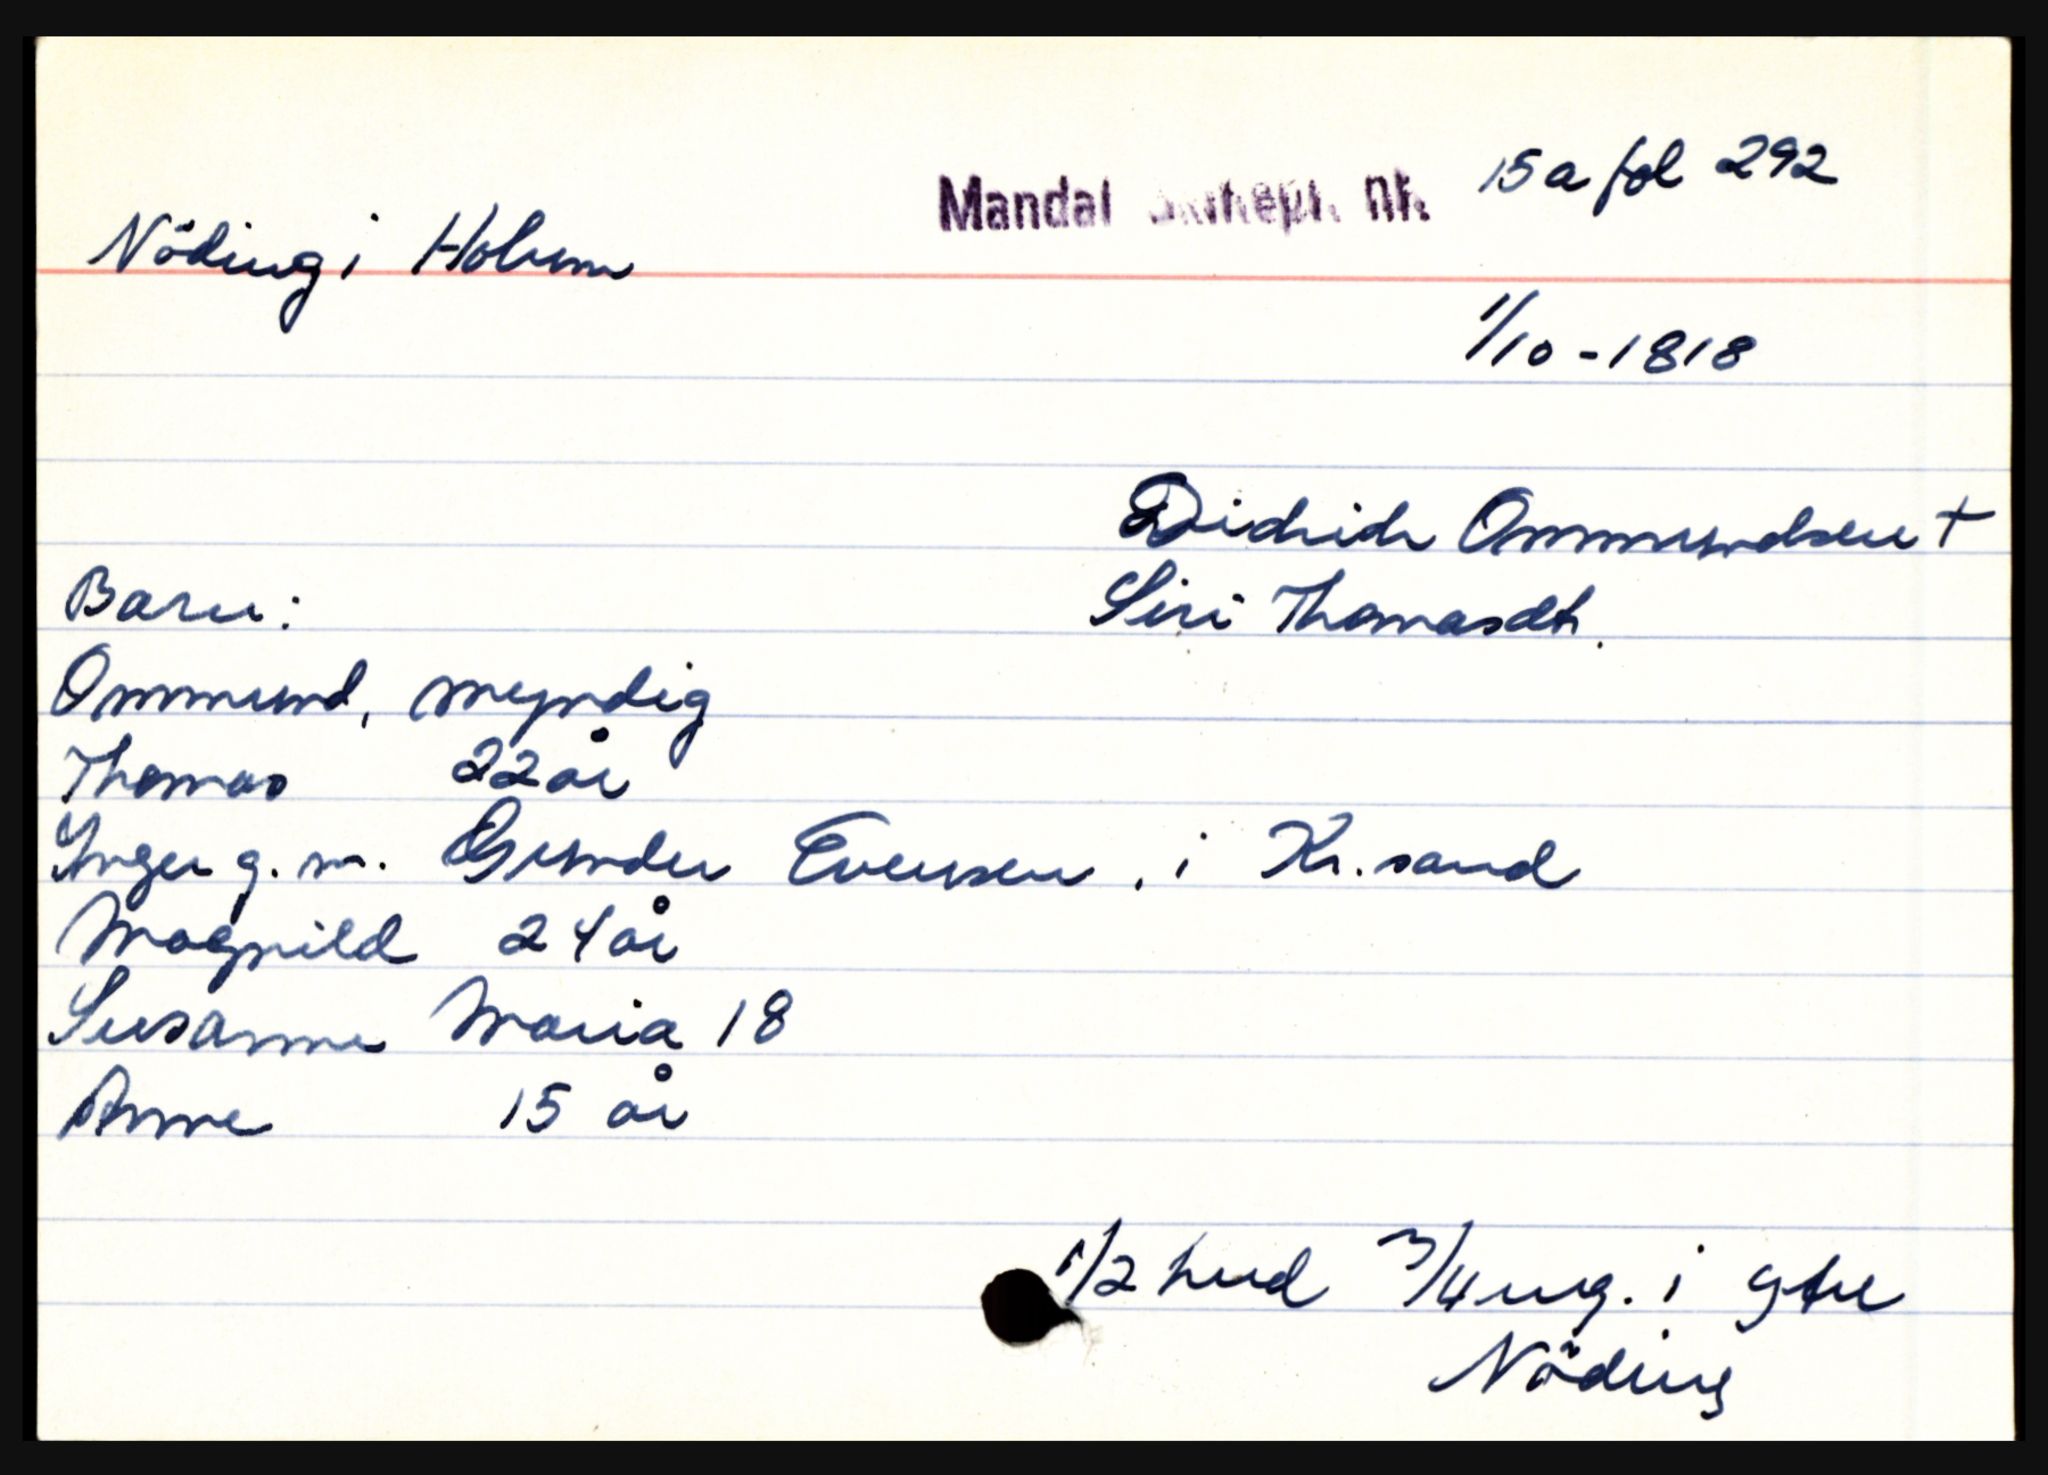 Mandal Skiftepr. nr. 15 a fol 292
Nöding i Holum
1/10 - 1818
Didrich Ommundsen +
Siri Thomasdt.
Barn:
Ommund, myndig
Thomas 22 år
Inger g. m. Gunder Evensen, i Kr.sand
Magnild 24 år
Susanne Maria 18
Anne 15 år
1/2 hud 3/4 eng. i går
Nöding